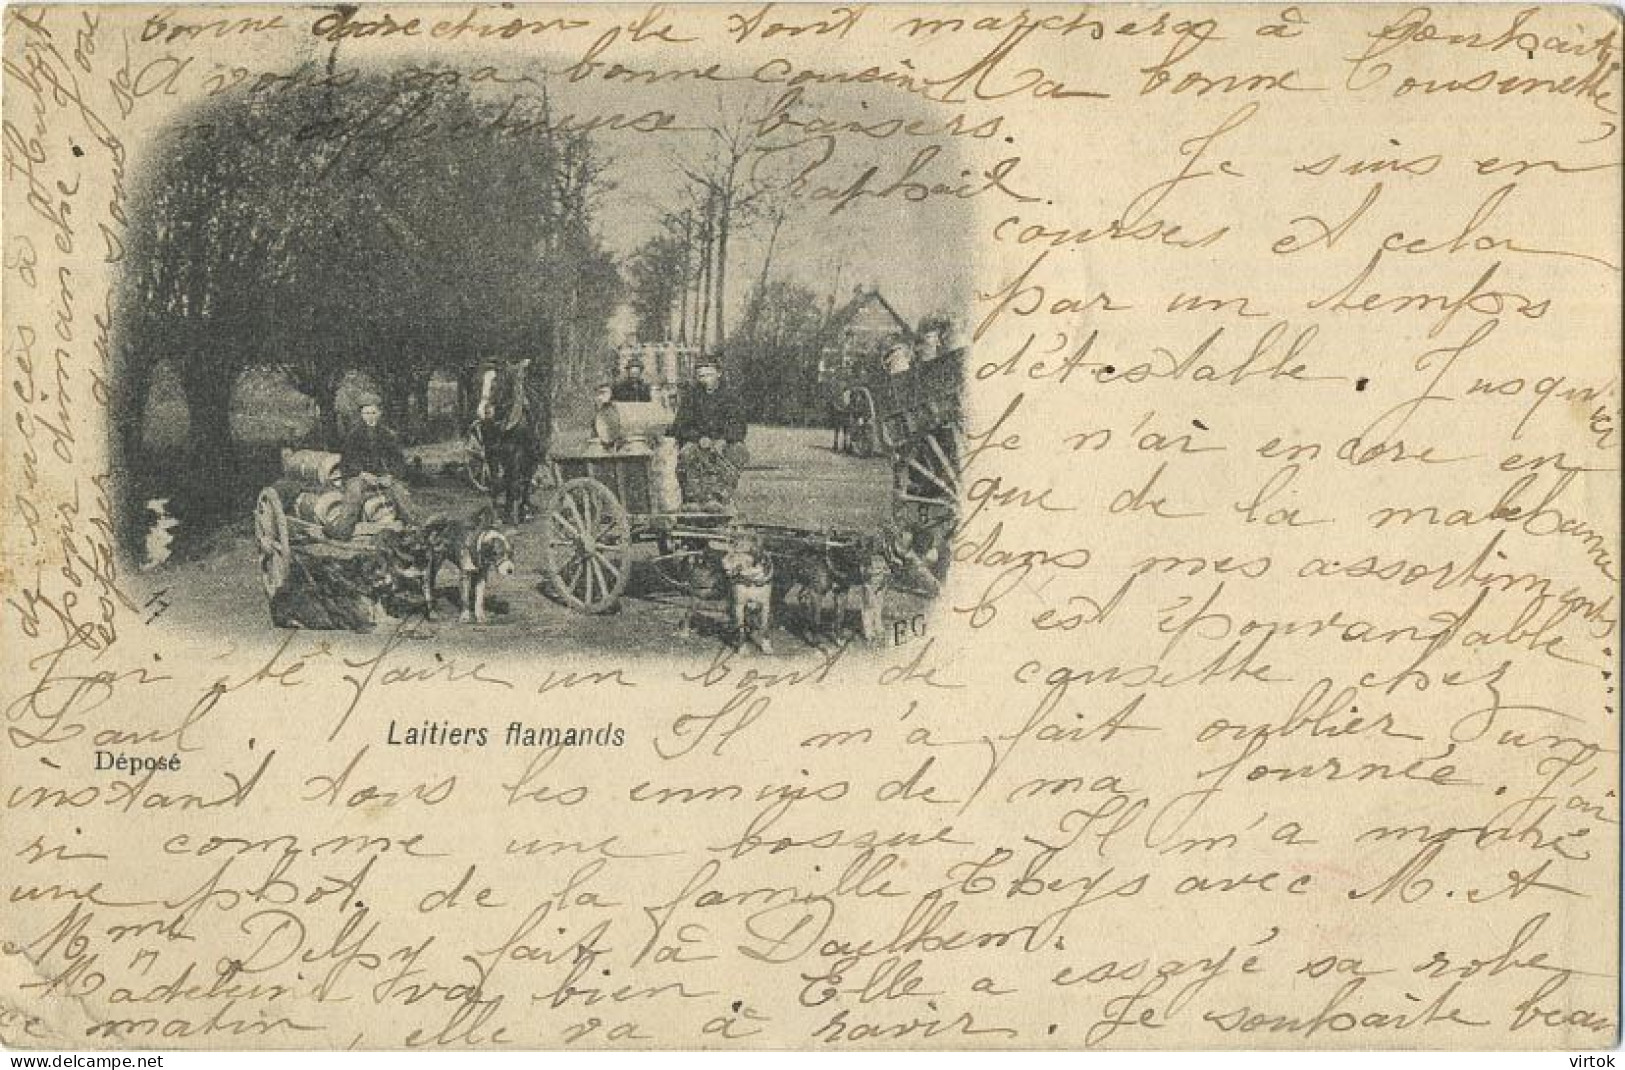 Je suis en
courses et cela
par un temps
détestable. Jusqu'ici
Je n'ai encore eu
que de la malchance
dans mes assortiments
C'est épouvantable
J'ai été faire un bout de causette chez
Paul. Il m'a fait oublier un
instant tous les ennuis de ma journée. J'ai
ri comme une bossue. Il m'a montré
une phot. de la famille Theys avec M. et
Mme Delpy fait à Daelhem.
Madeleine va bien. Elle a essayé sa robe
ce matin, elle va à ravir. Je souhaite beau
de succès à Hubert
pour dimanche. J'ose
espérer que sous sa
bonne direction le tout marchera à souhait
A vous ma bonne cousine Ma bonne Cousinette
affectueux baisers.
Raphaël
EG
Laitiers flamands
Déposé
virtok